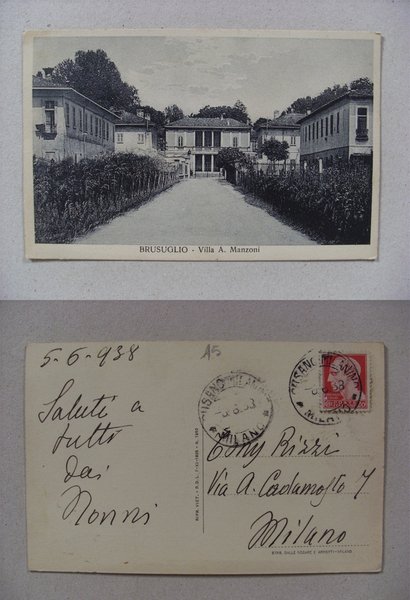 BRUSUGLIO - Villa A. Manzoni
5-6-938
A5
Saluti a
tutti
dai
Nonni
CUSANO MILANINO
MILANO
CUSANO MILANINO
MILANO
Tony Rizzi
Via A. Cadamosto 7
Milano